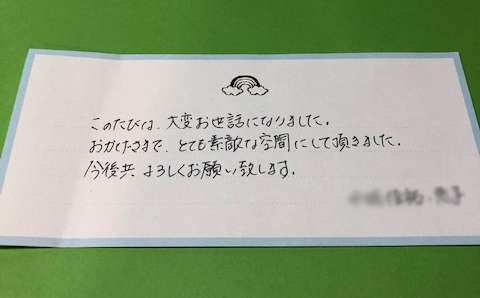 このたびは、大変お世話になりました。
おかげさまで、とても素敵な空間にして頂きました。
今後共、よろしくお願い致します。